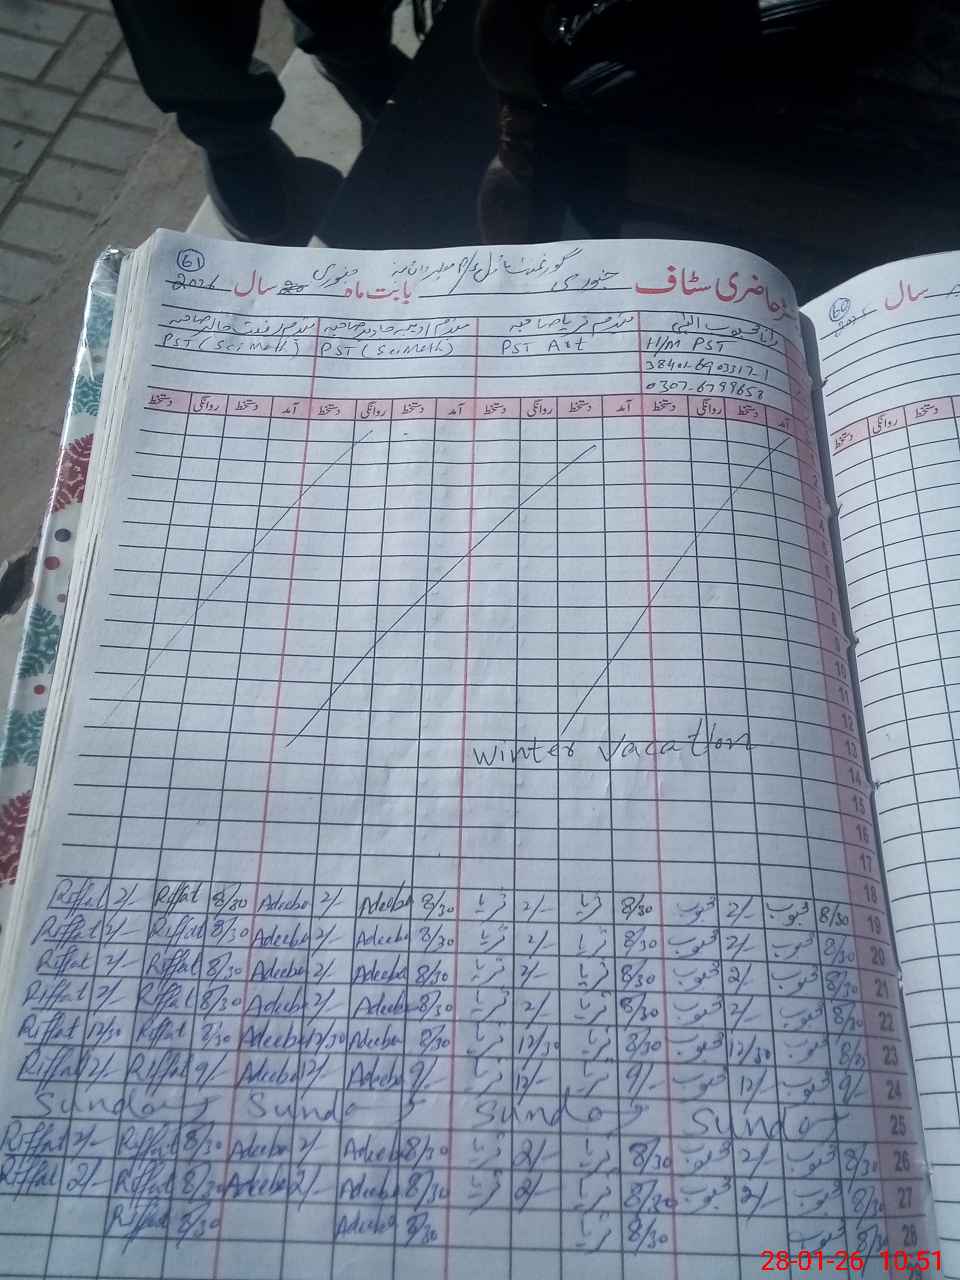 61
رجسٹر حاضری سٹاف جنوری بابت ماہ جنوری سال 2026
H/M PST PST Art PST (Sci Math) PST (Sci Math)
38401-6903317-1
0307-6799658
آمد دستخط روانگی دستخط آمد دستخط روانگی دستخط آمد دستخط روانگی دستخط آمد دستخط روانگی دستخط
2
3
4
5
6
7
8
9
10
11
12
Winter Vacation 13
14
15
16
17
18
19 8/30 محبوب 2/- محبوب 8/30 ثریا 2/- ثریا 8/30 Adeeba 2/- Adeeba 8/30 Riffat 2/- Riffat
20 8/30 محبوب 2/- محبوب 8/30 ثریا 2/- ثریا 8/30 Adeeba 2/- Adeeba 8/30 Riffat 2/- Riffat
21 8/30 محبوب 2/- محبوب 8/30 ثریا 2/- ثریا 8/30 Adeeba 2/- Adeeba 8/30 Riffat 2/- Riffat
22 8/30 محبوب 2/- محبوب 8/30 ثریا 2/- ثریا 8/30 Adeeba 2/- Adeeba 8/30 Riffat 2/- Riffat
23 محبوب 12/30 محبوب 8/30 ثریا 12/30 ثریا 8/30 Adeeba 12/30 Adeeba 8/30 Riffat 12/30 Riffat
24 9/- محبوب 12/- محبوب 9/- ثریا 12/- ثریا 9/- Adeeba 12/- Adeeba 9/- Riffat 12/- Riffat
25 Sunday Sunday Sunday Sunday
26 8/30 محبوب 2/- محبوب 8/30 ثریا 2/- ثریا 8/30 Adeeba 2/- Adeeba 8/30 Riffat 2/- Riffat
27 8/30 محبوب 2/- محبوب 8/30 ثریا 2/- ثریا 8/30 Adeeba 2/- Adeeba 8/30 Riffat 2/- Riffat
28 8/30 محبوب 8/30 ثریا 8/30 Adeeba 8/30 Riffat
60
سال
دستخط روانگی دستخط
28-01-26 10:51